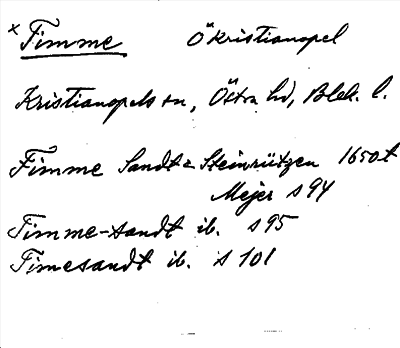 x Fimme Ö Kristianopel
Kristianopels sn, Östra hd, Blek. l.
Fimme Sandt & Steinrützen 1650t
Mejer s 94
Fimme-sandt ib. s 95
Fimesandt ib. s 101